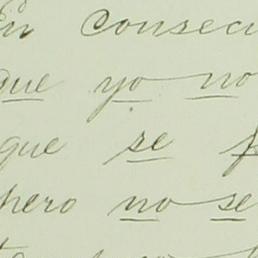 En consecu
que yo no
que se f
pero no se